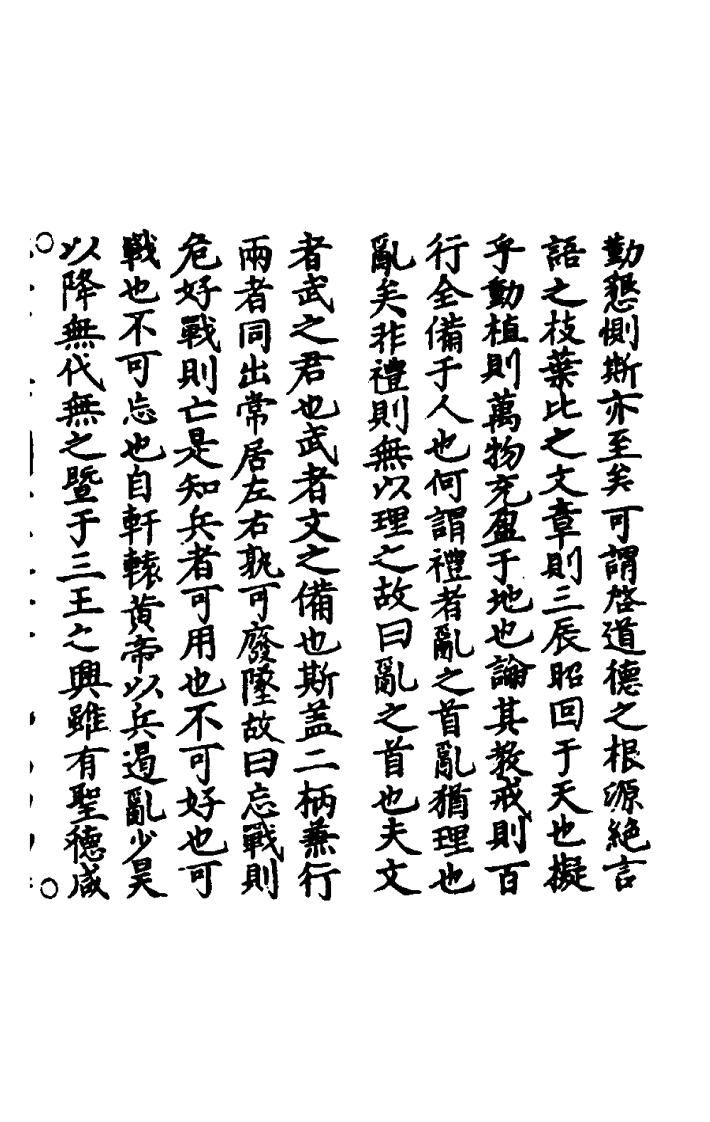 勤懇惻斯亦至矣可謂啓道德之根源絶言
語之枝葉比之文章則三辰昭回于天也擬
乎動植則萬物充盈于地也論其教戒則百
行全備于人也何謂禮者亂之首亂猶理也
亂矣非禮則無以理之故曰亂之首也夫文
者武之君也武者文之備也斯盖二柄兼行
兩者同出常居左右孰可廢墜故曰忘戰則
危好戰則亡是知兵者可用也不可好也可
戰也不可忘也自軒轅黄帝以兵遏亂少昊
以降無代無之暨于三王之興雖有聖德咸